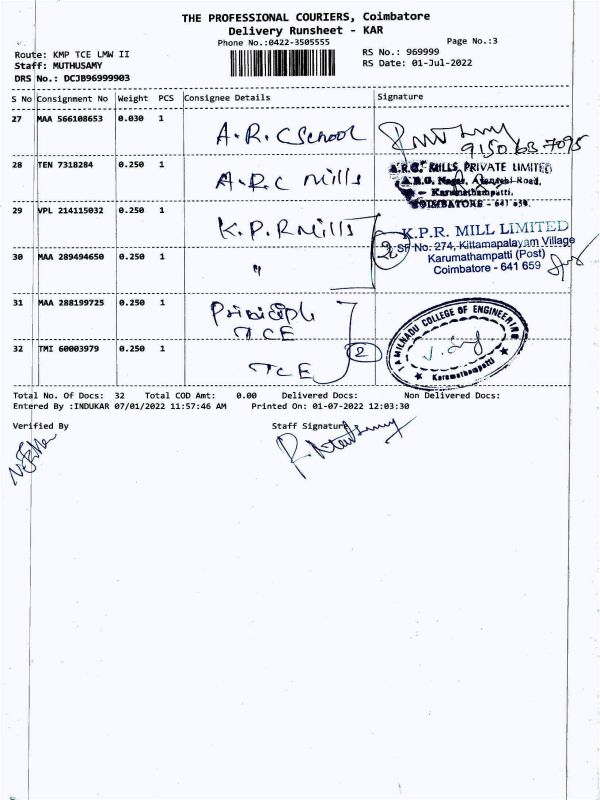 THE PROFESSIONAL COURIERS, Coimbatore
Delivery Runsheet - KAR
Phone No.:0422-3505555 Page No.:3
Route: KMP TCE LMW II RS No.: 969999
Staff: MUTHUSAMY RS Date: 01-Jul-2022
DRS No.: DCJB96999903
S No Consignment No Weight PCS Consignee Details Signature
27 MAA 566108653 0.030 1 A.R.C School
9150637095
28 TEN 7318284 0.250 1 A.R.C Mills
A.R.C. MILLS PRIVATE LIMITED
Road,
Karumathampatti,
COIMBATORE - 641 659.
29 VPL 214115032 0.250 1 K.P.R Mills
K.P.R. MILL LIMITED
2 SF No: 274, Kittamapalayam Village
Karumathampatti (Post)
Coimbatore - 641 659
30 MAA 289494650 0.250 1 "
31 MAA 288199725 0.250 1 Principle
TCE
TAMILNADU COLLEGE OF ENGINEERING
Karumathampatti
32 TMI 60003979 0.250 1 TCE 2
Total No. Of Docs: 32 Total COD Amt: 0.00 Delivered Docs: Non Delivered Docs:
Entered By :INDUKAR 07/01/2022 11:57:46 AM Printed On: 01-07-2022 12:03:30
Verified By Staff Signature